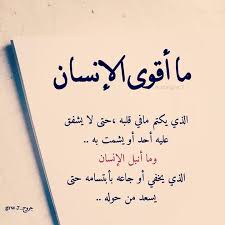 ما أقوى الإنسان
الذي يكتم مافي قلبه ،حتى لا يشفق
عليه أحد أو يشمت به ..
وما أنبل الإنسان
الذي يخفي أو جاعه بأبتسامه حتى
يسعد من حوله ..
جروح..grw.7